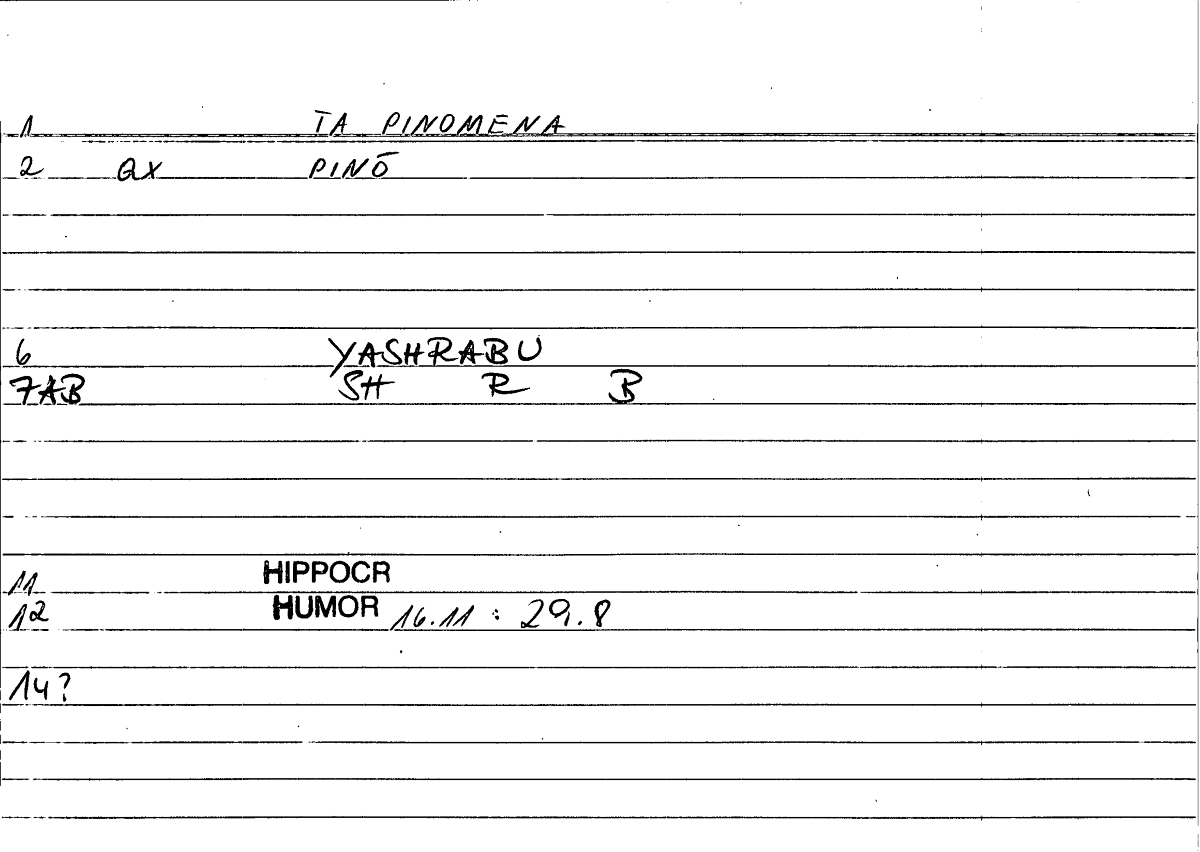 1 TA PINOMENA
2 QX PINŌ
6 YASHRABU
7AB SH R B
11 HIPPOCR
12 HUMOR 16.11 : 29.8
14?